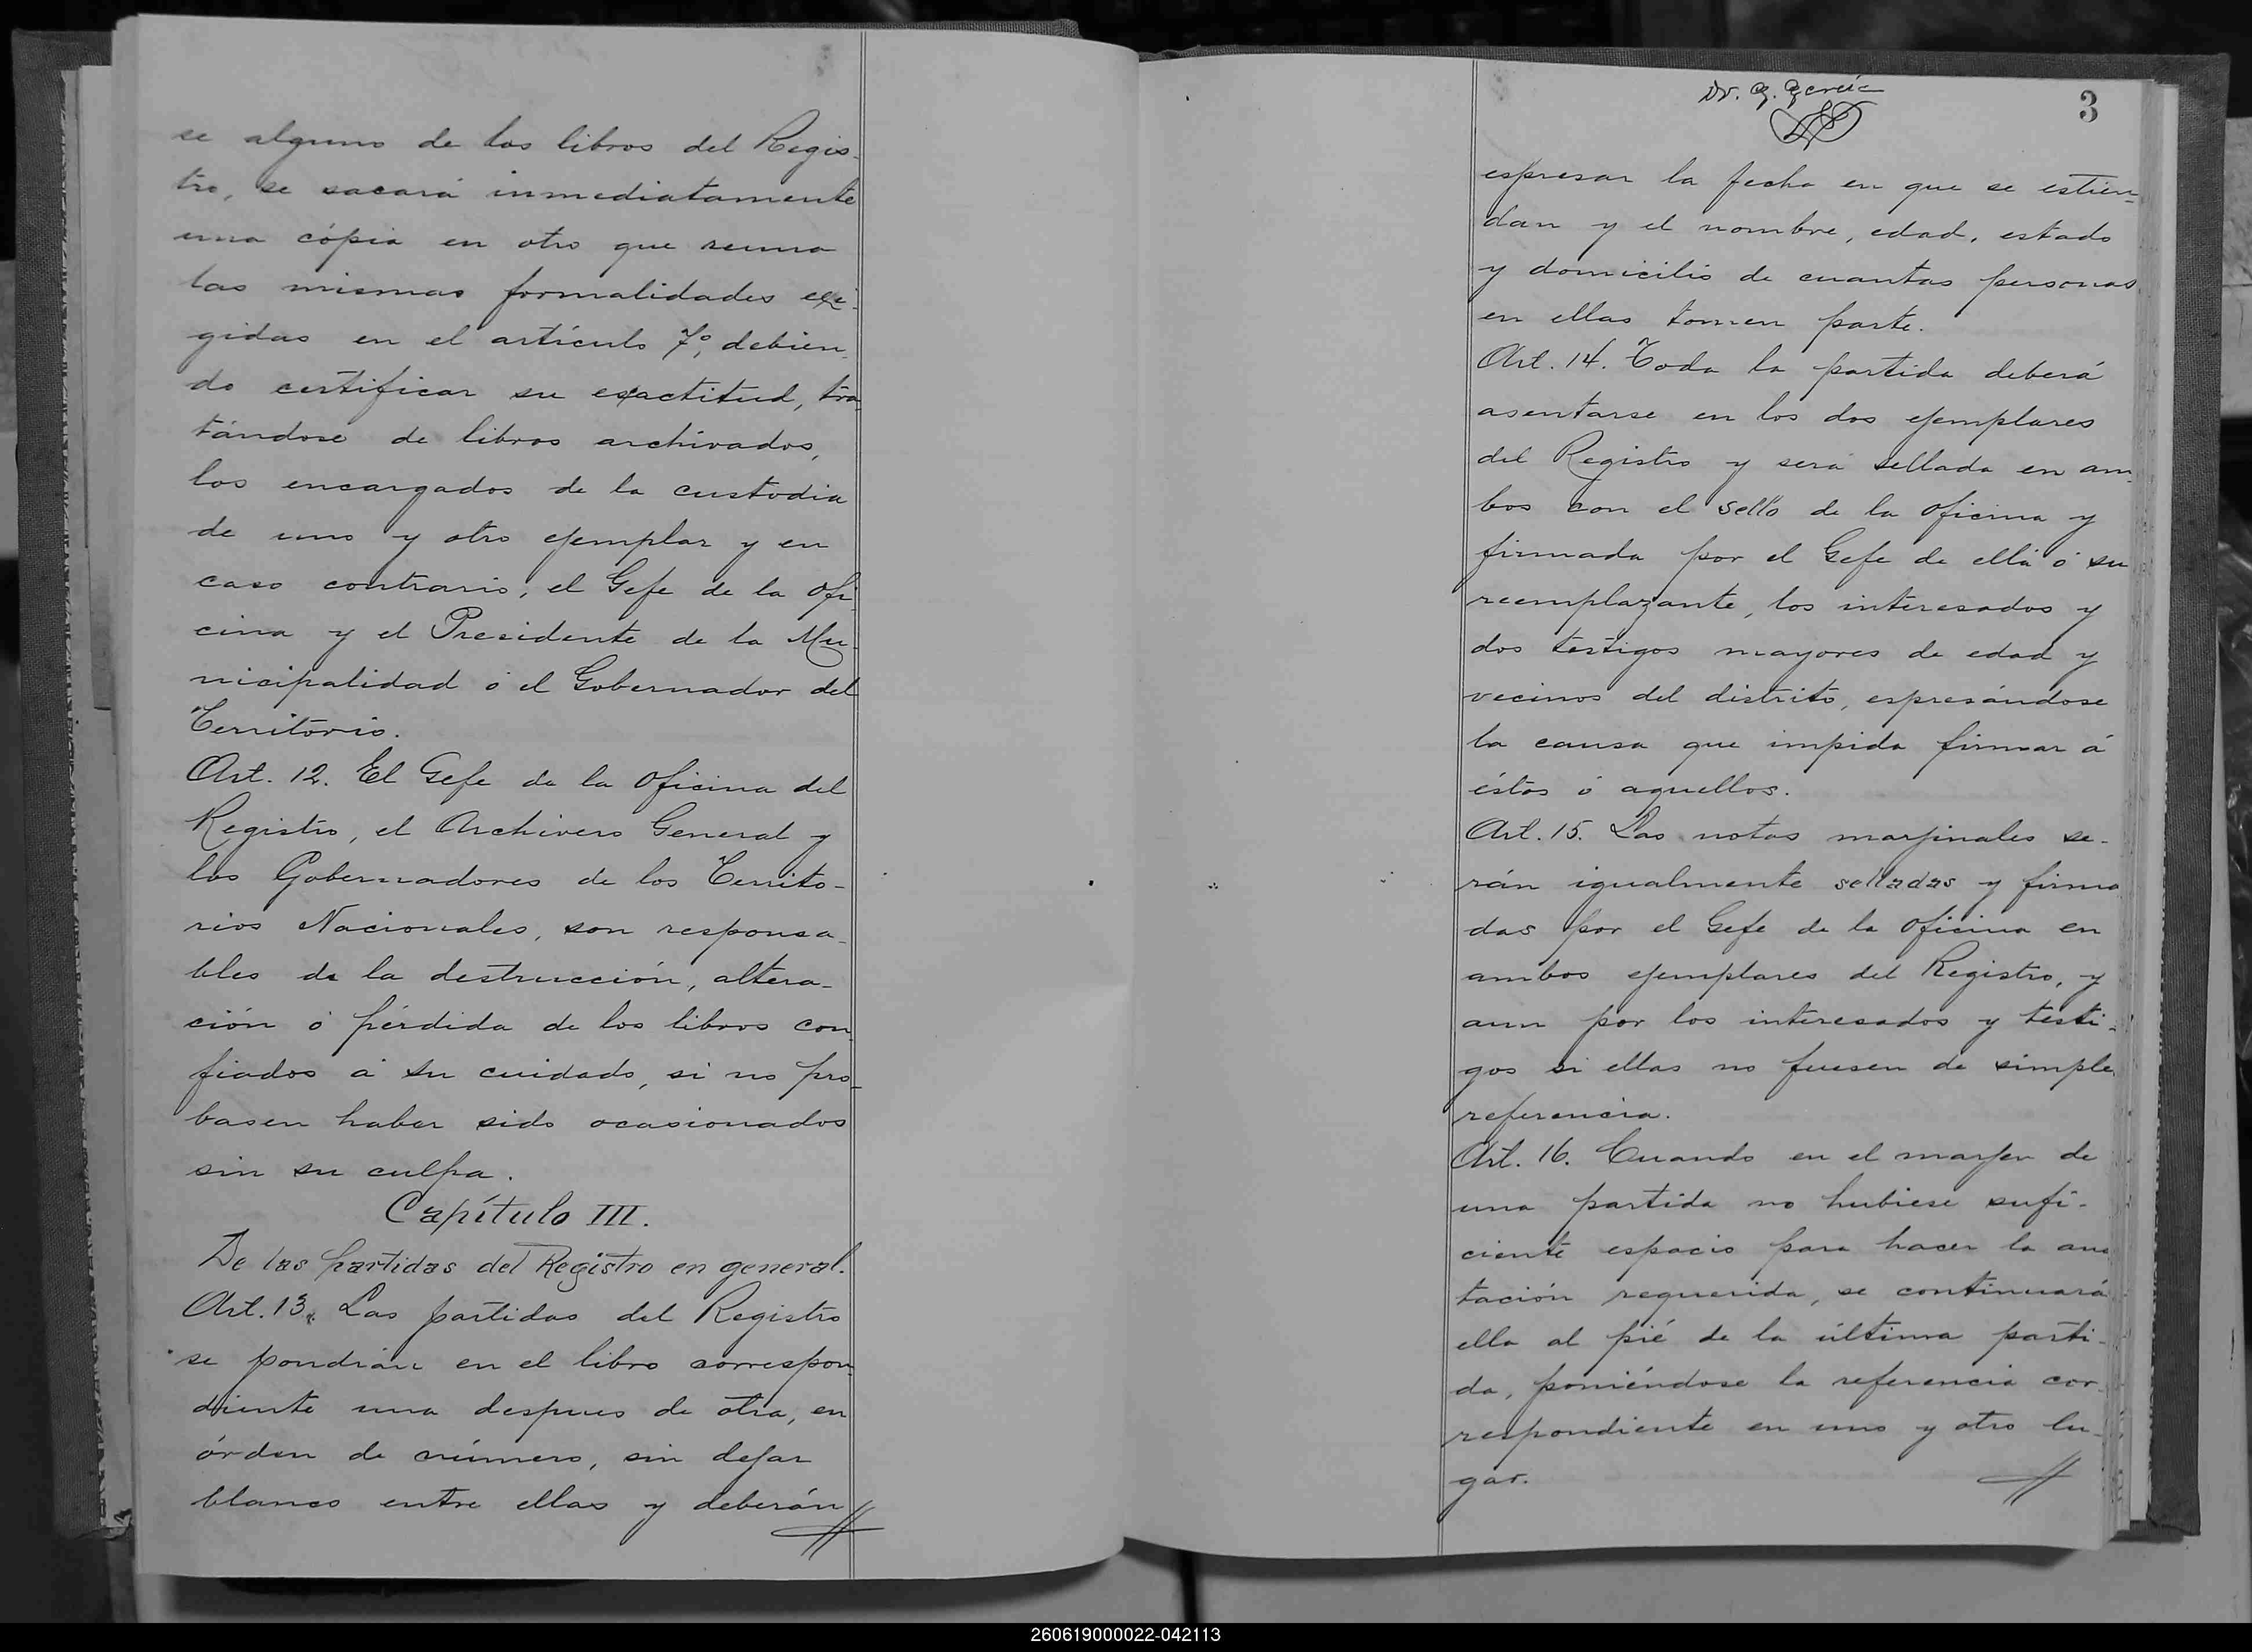 se alguno de los libros del Regis-
tro, se sacará inmediatamente
una cópia en otro que reuna
las mismas formalidades exi-
gidas en el artículo 7º, debien-
do certificar su exactitud, tra-
tándose de libros archivados,
los encargados de la custodia
de uno y otro ejemplar y en
caso contrario, el Gefe de la Ofi-
cina y el Presidente de la Mu-
nicipalidad ó el Gobernador del
Territorio.
Art. 12. El Gefe de la Oficina del
Registro, el Archivero General y
los Gobernadores de los Territo-
rios Nacionales, son responsa-
bles de la destrucción, altera-
ción ó pérdida de los libros con-
fiados á su cuidado, si no pro-
basen haber sido ocasionados
sin su culpa.
Capítulo III.
De las partidas del Registro en general.
Art. 13. Las partidas del Registro
se pondrán en el libro correspon-
diente una despues de otra, en
órden de número, sin dejar
blanco entre ellas y deberán
Dr. G. García
3
espresar la fecha en que se estien-
dan y el nombre, edad, estado
y domicilio de cuantas personas
en ellas tomen parte.
Art. 14. Toda la partida deberá
asentarse en los dos ejemplares
del Registro y será sellada en am-
bos con el sello de la oficina y
firmada por el Gefe de ella ó su
reemplazante, los interesados y
dos testigos mayores de edad y
vecinos del distrito, espresándose
la causa que impida firmar á
éstos ó aquellos.
Art. 15. Las notas marjinales se-
rán igualmente selladas y firma-
das por el Gefe de la Oficina en
ambos ejemplares del Registro, y
aun por los interesados y testi-
gos si ellas no fuesen de simple
referencia.
Art. 16. Cuando en el marjen de
una partida no hubiese sufi-
ciente espacio para hacer la ano
tación requerida, se continuará
ella al pié de la última parti-
da, poniéndose la referencia cor-
respondiente en uno y otro lu-
gar.
260619000022-042113